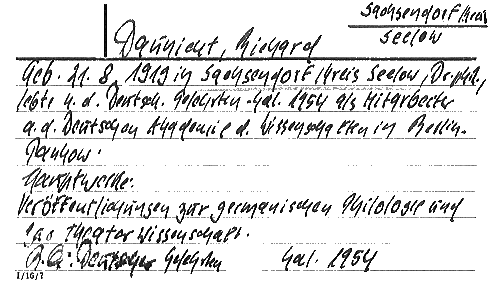 Sachsendorf/Kreis
Seelow
Daunicht, Richard
Geb. 21. 8. 1919 in Sachsendorf/Kreis Seelow, Dr. phil.,
lebte n. d. Deutsch. Gelehrten-Kal. 1954 als Mitarbeiter
a. d. Deutschen Akademie d. Wissenschaften in Berlin-
Pankow.
Hauptwerke:
Veröffentlichungen zur germanischen Philologie und
Theaterwissenschaft.
Deutscher Gelehrten Kal. 1954
1/16/7